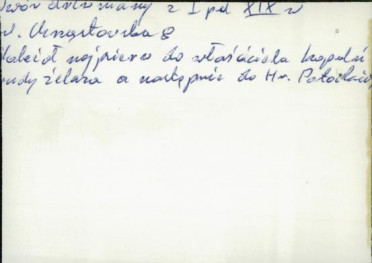 Dwór drewniany z I poł XIX w
ul. Chrząstowska 8
Należał najpierw do właściciela kopalni
rudy żelaza a następnie do Hr. Potockich